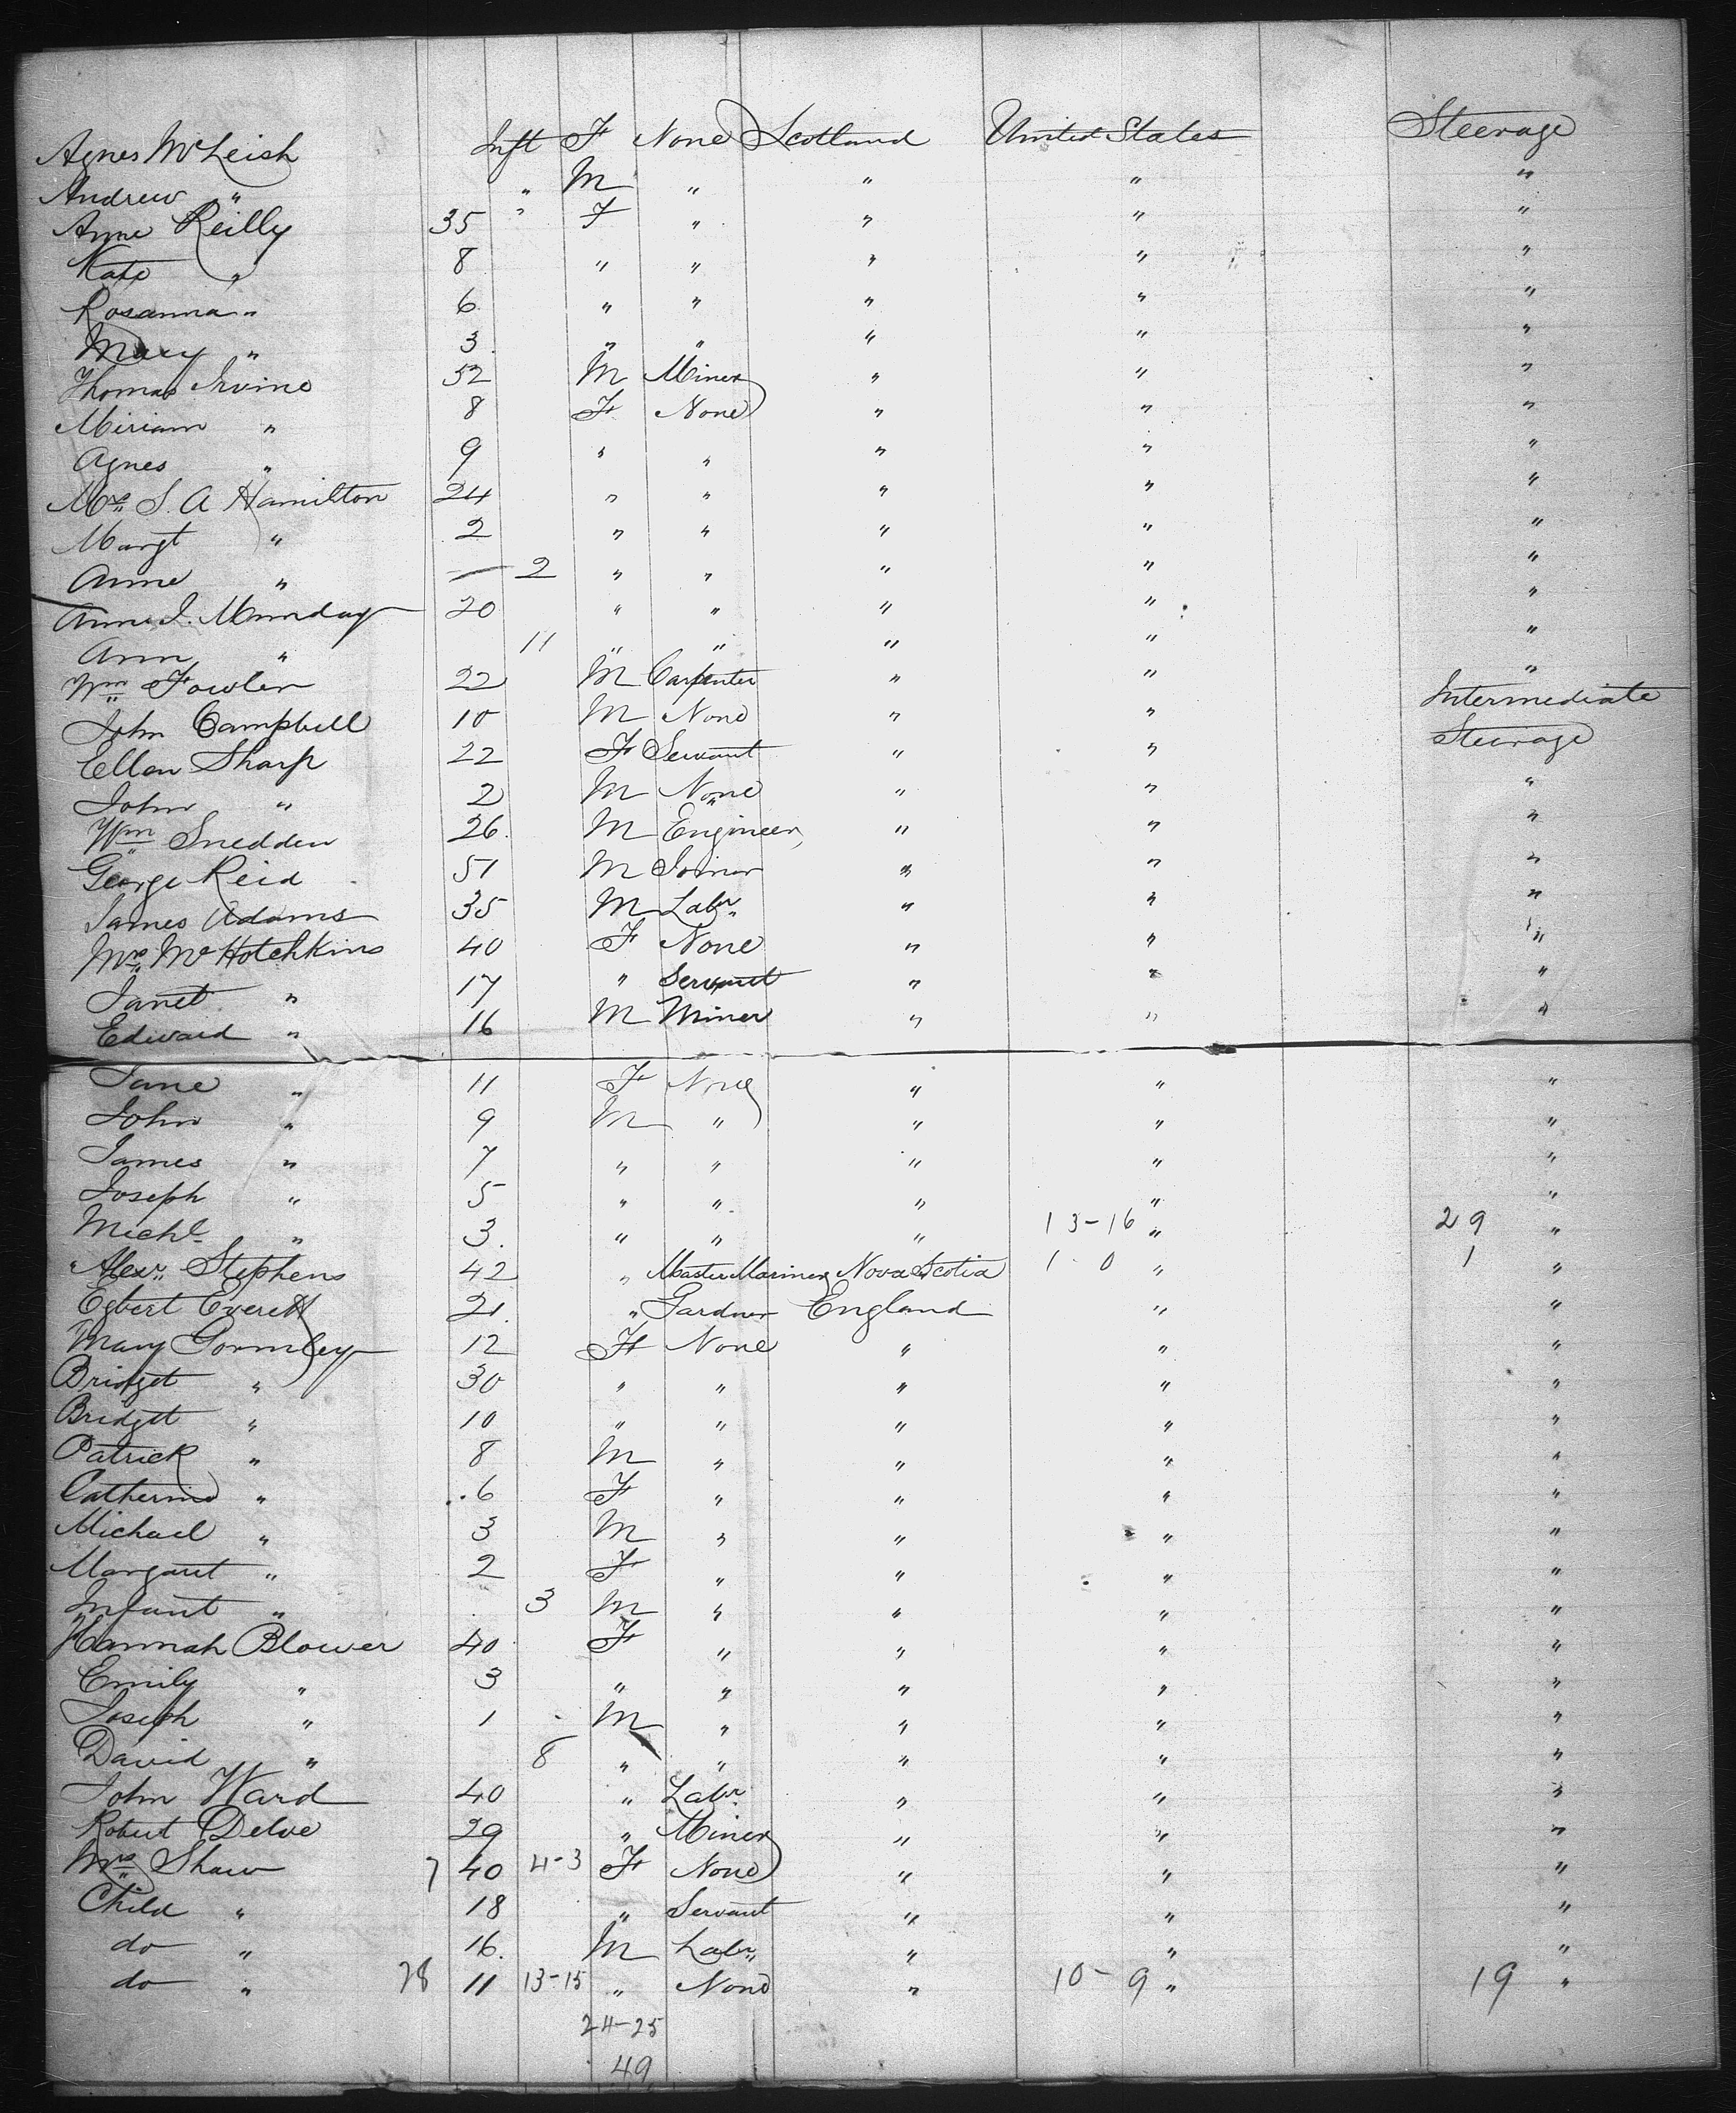 Agnes McLeish Inft F None Scotland United States Steerage
Andrew " " M " " " "
Anne Reilly 35 " F " " " "
Kate " 8 " " " " "
Rosanna " 6 " " " " "
Mary " 3 " " " " "
Thomas Irvine 52 M Miner " " "
Miriam " 8 F None " " "
Agnes " 9 " " " " "
Mrs S. A Hamilton 24 " " " " "
Margt " 2 " " " " "
Anne " — 2 " " " " "
Anne I. Munday 20 " " " " "
Ann " 11 " " " " "
Wm Fowler 22 M Carpenter " " "
John Campbell 10 M None " " Intermediate
Ellen Sharp 22 F Servant " " Steerage
John " 2 M None " " "
Wm Snedden 26 M Engineer " " "
George Reid 51 M Joiner " " "
James Adams 35 M Labr " " "
Mrs McHotchkins 40 F None " " "
Janet " 17 " Servant " " "
Edward " 16 M Miner " " "
Jane " 11 F None " " "
John " 9 M " " " "
James " 7 " " " " "
Joseph " 5 " " " " "
Michl " 3 " " " 13-16 " 29 "
Alexr Stephens 42 " Master Mariner Nova Scotia 1 0 " 1 "
Egbert Everett 21 " Gardner England " "
Mary Gormley 12 F None " " "
Bridget " 30 " " " " "
Bridgtt " 10 " " " " "
Patrick " 8 M " " " "
Catherine " 6 F " " " "
Michael " 3 M " " " "
Margaret " 2 F " " " "
Infant " 3 M " " " "
Hannah Blower 40 F " " " "
Emily " 3 " " " " "
Joseph " 1 M " " " "
David " 8 " " " " "
John Ward 40 " Labr " " "
Robert Delve 29 " Miner " " "
Mrs Shaw 7 40 4-3 F None " " "
Child " 18 " Servant " " "
do " 16 M Labr " " "
do " 28 11 13-15 " None " 10-9 " 19 "
24-25
49